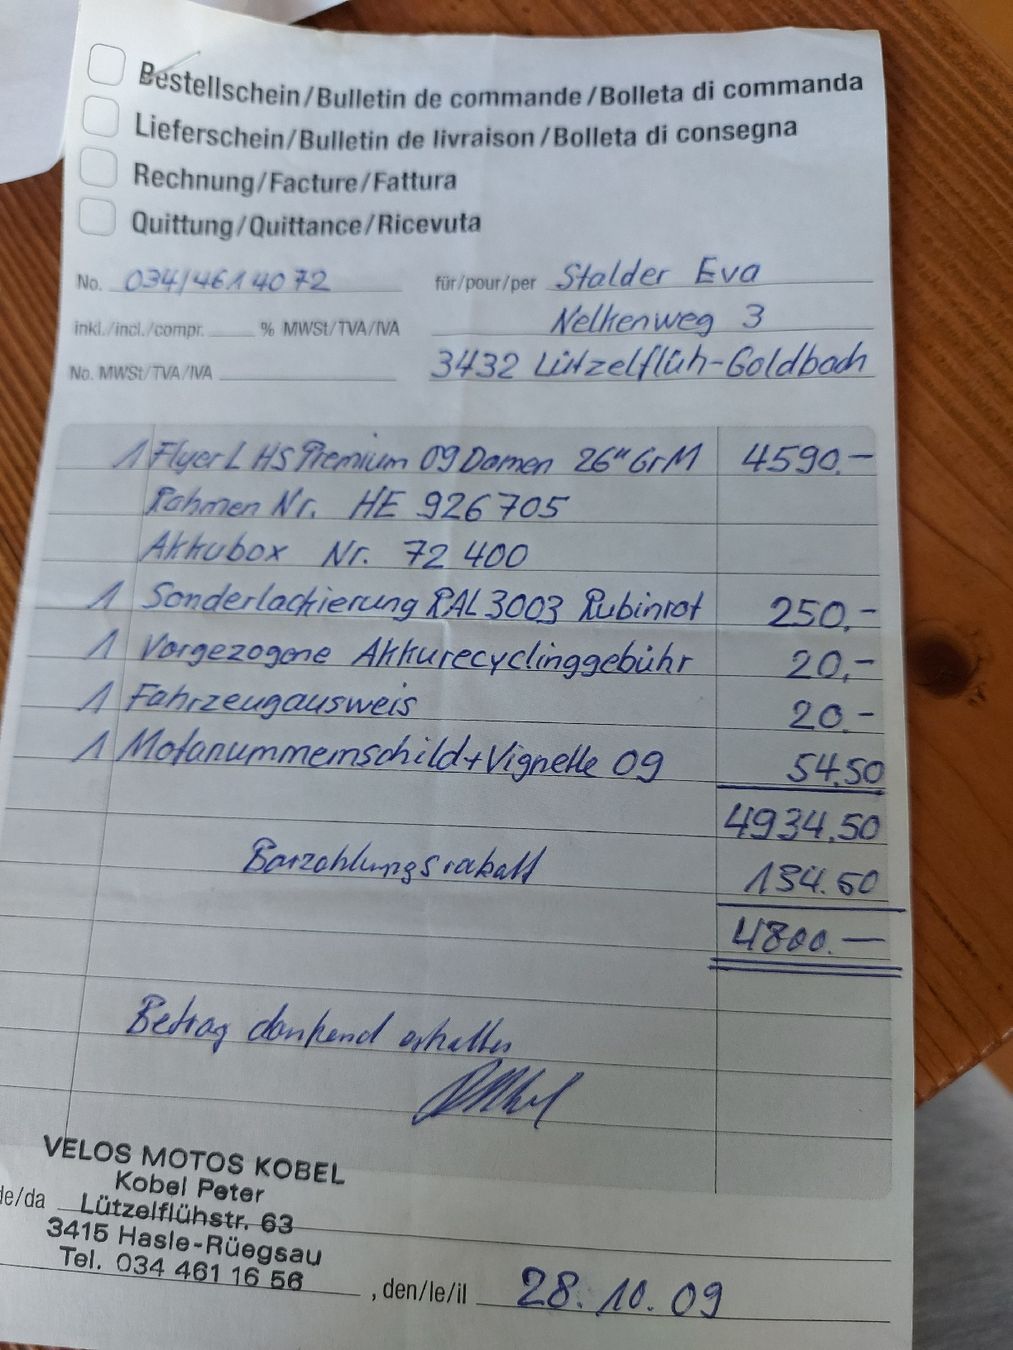 Bestellschein/Bulletin de commande/Bolleta di commanda
Lieferschein/Bulletin de livraison/Bolleta di consegna
Rechnung/Facture/Fattura
Quittung/Quittance/Ricevuta
No. 034/4614072 für/pour/per Stalder Eva
inkl./incl./compr. % MWSt/TVA/IVA Nelkenweg 3
No. MWSt/TVA/IVA 3432 Lützelflüh-Goldbach
1 Flyer L HS Premium 09 Damen 26" Gr M 4590.-
Rahmen Nr. HE 926705
Akkubox Nr. 72 400
1 Sonderlackierung RAL 3003 Rubinrot 250.-
1 Vorgezogene Akkurecyclinggebühr 20.-
1 Fahrzeugausweis 20.-
1 Mofanummernschild + Vignette 09 54.50
4934.50
Barzahlungsrabatt 134.50
4800.-
Betrag dankend erhalten
VELOS MOTOS KOBEL
Kobel Peter
de/da Lützelflühstr. 63
3415 Hasle-Rüegsau
Tel. 034 461 16 56
, den/le/il 28.10.09